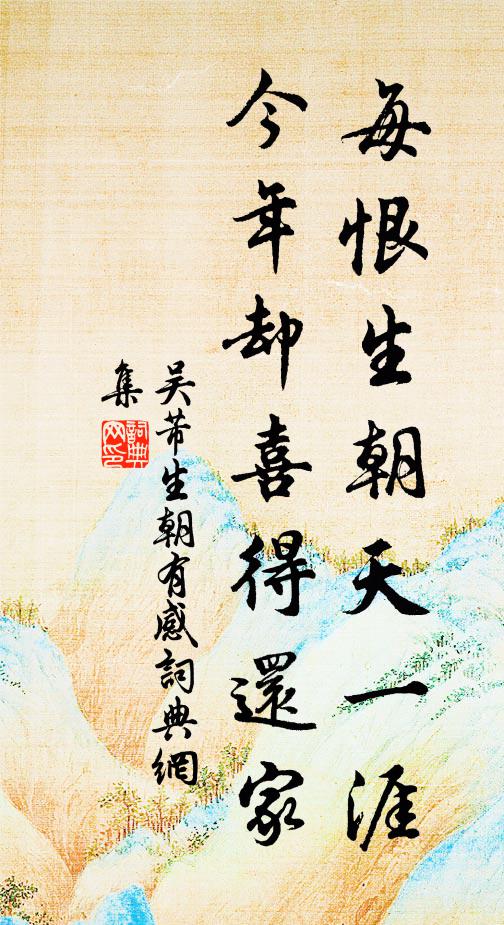 每恨生朝天一涯
今年却喜得還家
吴芾生朝有感詞典網
集
詞典網印